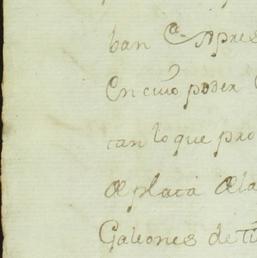 ban Cᵃ Apres
En cuio poder
can lo que pro
de plata de la
Galeones de ti